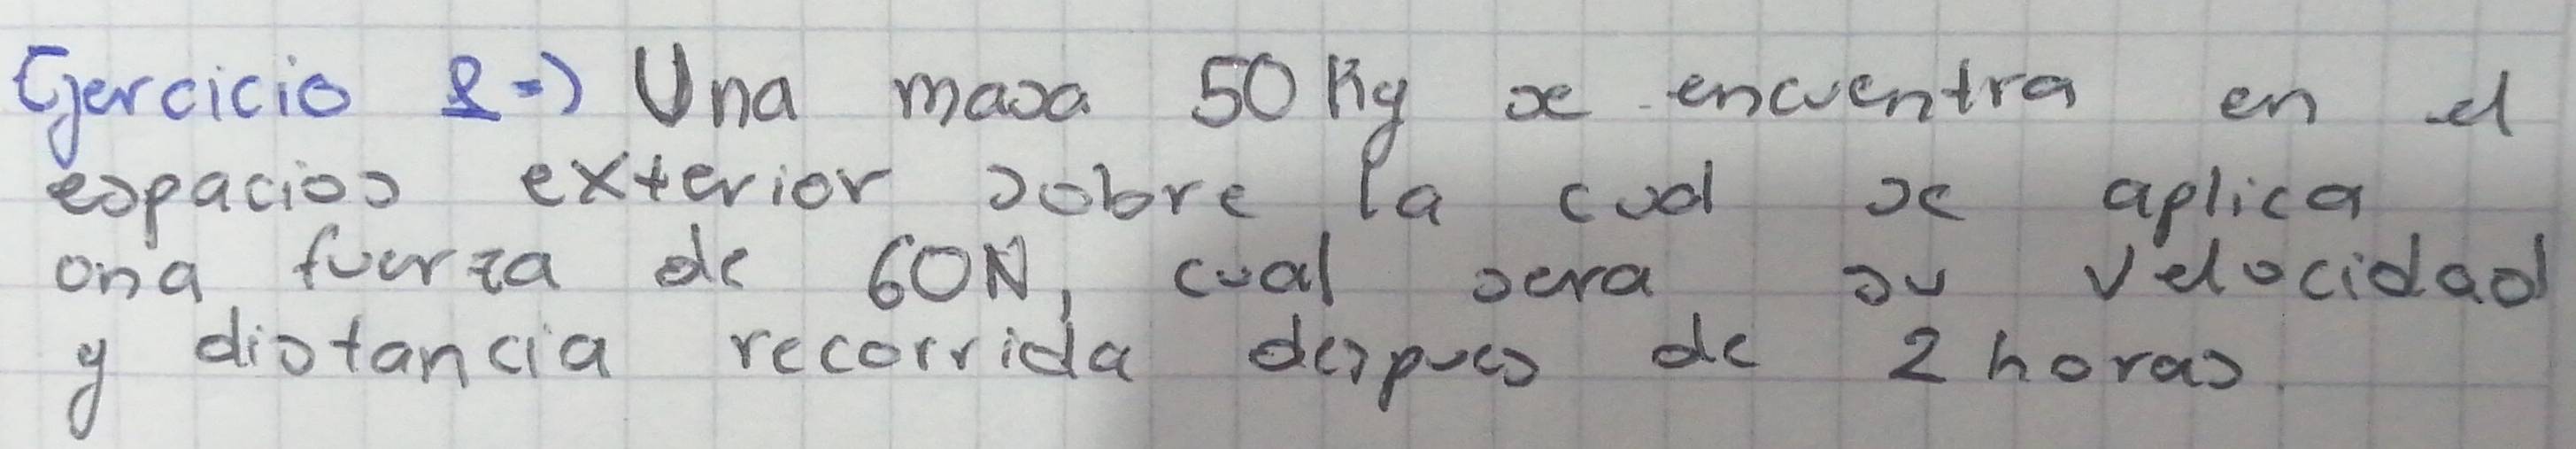 Ejercicio 2-) Una masa 50 Kg se encuentra en el
espacios exterior sobre la cual se aplica
una fuerza de 60N, cual sera su velocidad
y distancia recorrida despues de 2 horas.